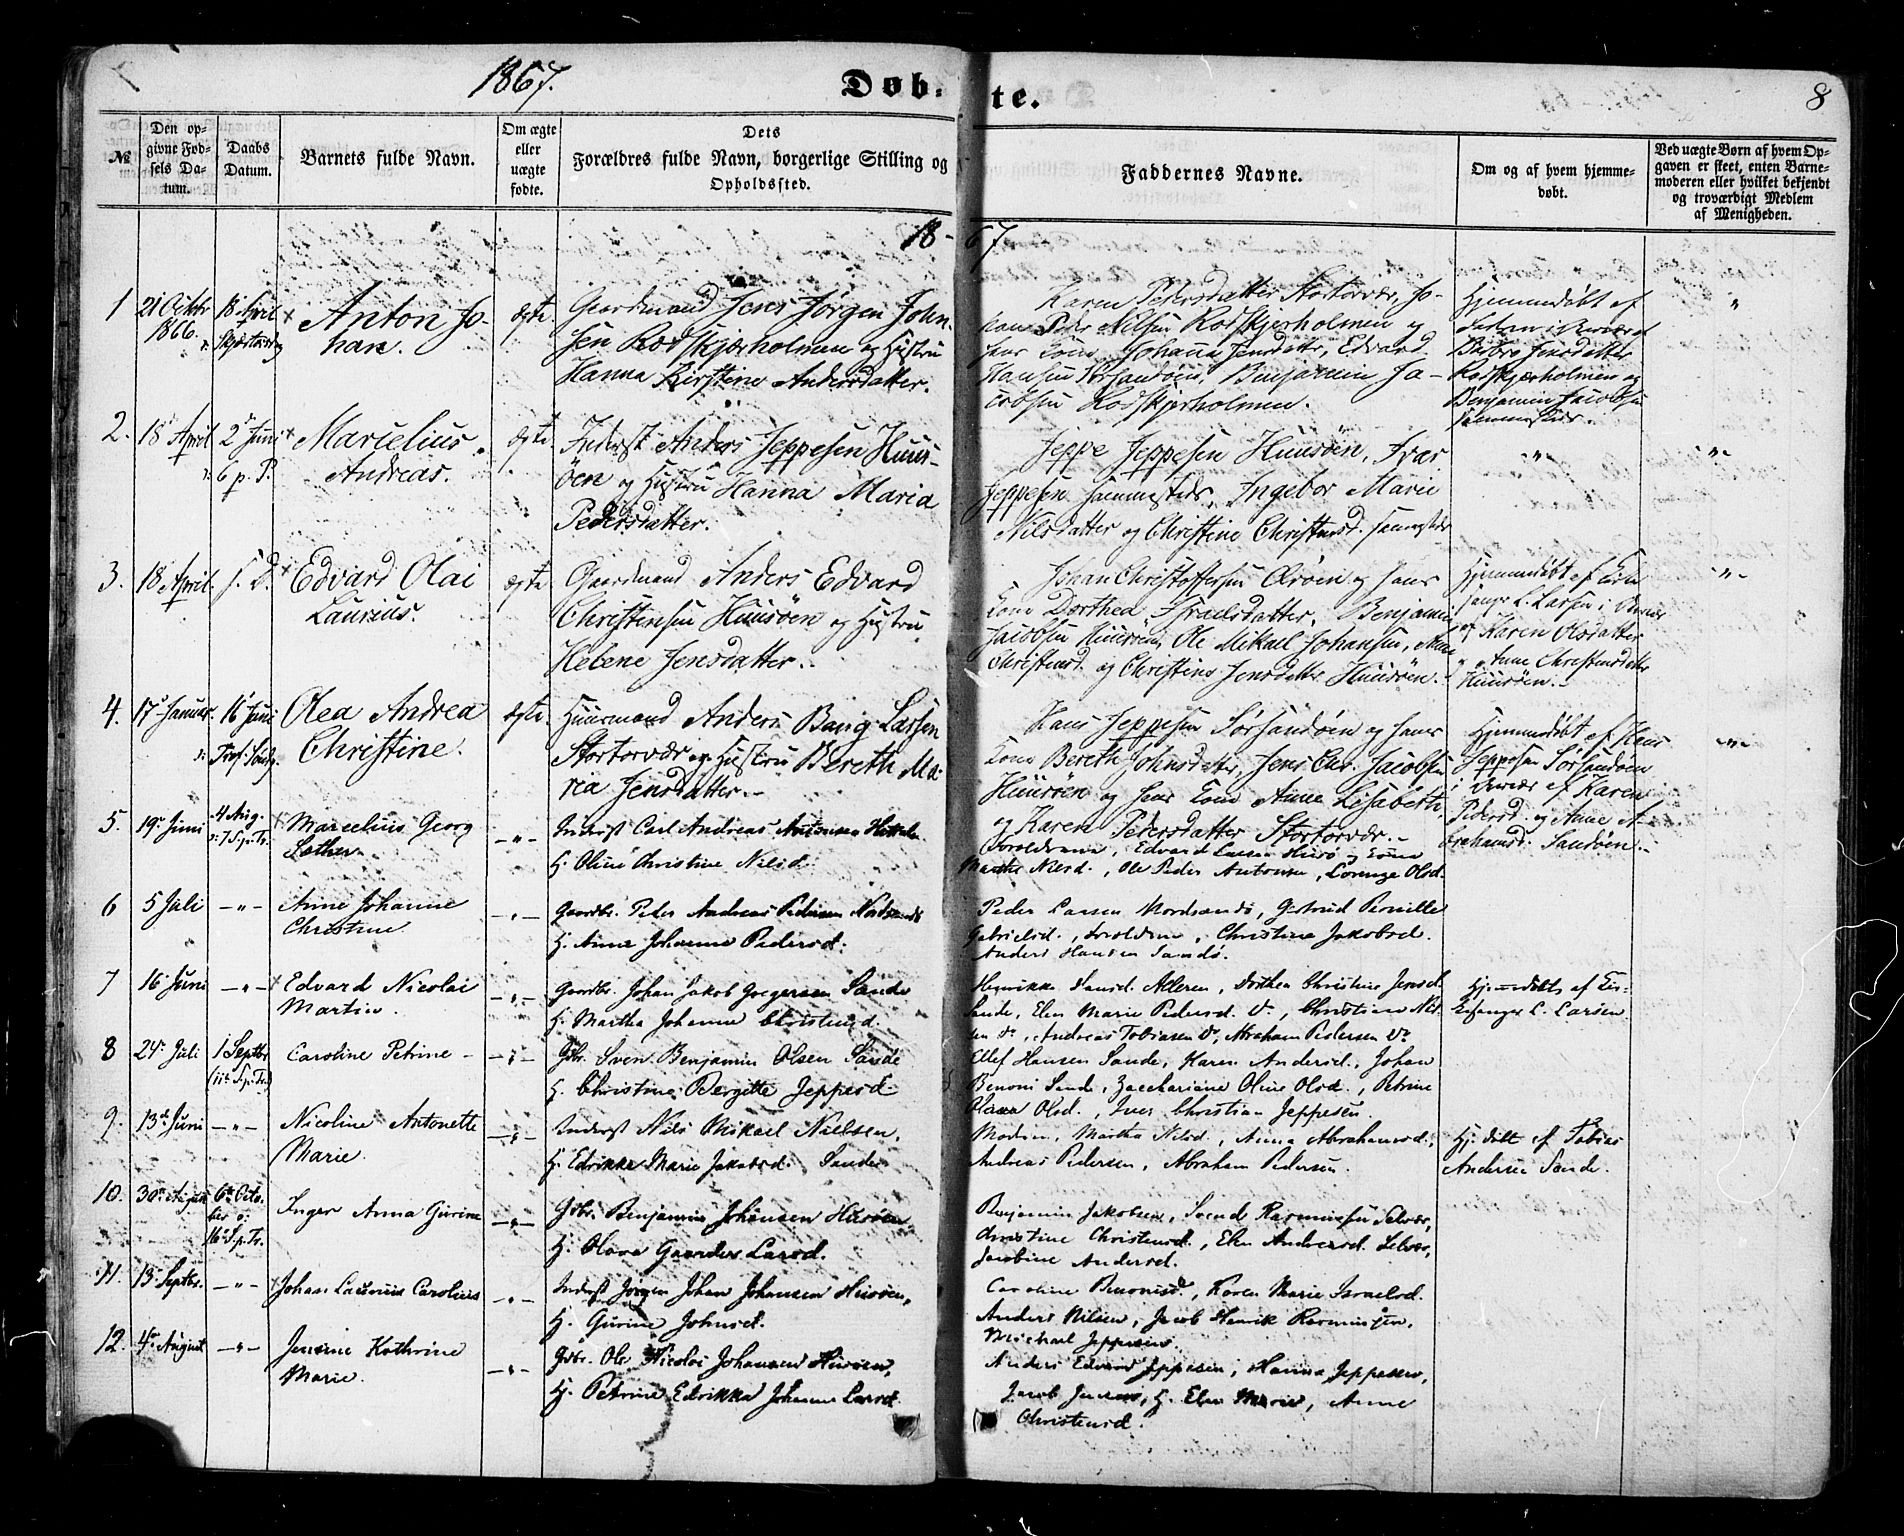 1867.
Døb-te.
8
№
Den opgivne Fødsels Datum.
Daabs Datum.
Barnets fulde Navn.
Om ægte eller uægte fødte.
Dets Forældres fulde Navn, borgerlige Stilling og Opholdssted.
Faddernes Navne.
Om og af hvem hjemmedøbt.
Ved uægte Børn af hvem Opgaven er skeet, enten Barnemoderen eller hvilket bekjendt og troværdigt Medlem af Menigheden.
18-67
1
21 Octbr 1866.
18 April
Anton Johan.
ægte
Gaardmand Jens Jørgen Johnsen Rødskjærholmen og Hustru Hanna Kirstine Andersdatter.
Karen Pedersdatter Stortorvær, Johan Peder Nilsen Rødskjerholmen og hans Kone Johanna Jensdatter, Edvard Hansen Sørsandøen, Benjamin Jacobsen Rødskjerholmen.
Hjemmedøbt af
Jensdatter Rødskjærholmen og Benjamin Jacobsen sammesteds.
"
2.
18 April
2 Juni
6 p. P.
Marcelius Andreas.
ægte
Inderst Anders Jeppesen Huusöen og Hustru Hanna Maria Pedersdatter.
Jeppe Jeppesen Huusöen, Ivar Jeppesen sammesteds, Ingebor Marie Nilsdatter og Christine Christensd. sammesteds
"
-"-
3.
18 April
s. D.
Edvard Olai Laurius.
ægte
Gaardmand Anders Edvard Christensen Huusöen og Hustru Helene Jensdatter.
Johan Christoffersen og hans Kone Dorthea Israelsdatter, Benjamin Jacobsen Huusöen, Ole Mikael Johansen, Christensd. og Christine Jensdatter Huusöen.
Hjemmedøbt af Kirkesanger L. Larsen i
af Karen Olsdatter
" Anne Christensdatter Huusöen.
-"-
4.
17 Januar.
16 Juni
Olea Andrea Christine.
ægte.
Huusmand Anders Bang Larsen Stortorvær og Hustru Bereth Maria Jensdatter.
Hans Jeppesen Sørsandøen og hans Kone Bereth Johnsdatter, Jens Chr. Jacobsen Huusöen og hans Kone Anne Lisabeth, og Karen Pedersdatter Stortorvær.
Hjemmedøbt af Hans Jeppesen Sørsandøen
af Karen Pedersd. og Anne Abrahamsd. Sandøen.
-"-
5.
19 Juni
4 Aug.
7 S. p. Tr.
Marcelius Georg
-"-
Inderst Carl Andreas Antonsen
H. Oline Christine Nilsd.
Forældrene, Edvard Larsen Husø og Kone
Marthe Nilsd., Ole Peder Antonsen, Lorenze Olsd.
6
5 Juli
-"-
Anne Johanne Christine
-"-
Gaardbr. Peder Andreas Pedersen Nordsandø
H. Anne Johanne Pedersd.
Peder Larsen Nordsandø, Gertrud Pernille
Gabrielsd., Forældrene, Christine Jakobsd.
Anders Hansen Sandø.
7
16 Juni
-"-
Edvard Nicolai Martin.
-"-
Gaardbr. Johan Jakob Gregersen Sande
H. Martha Johanne Christensd.
Henrikke Hansd. Alleren, Dorthea Christine Jensd.
Sande, Elen Marie Pedersd. Do, Christian Nilsen Do, Andreas Tobiasen Do, Abraham Pedersen Do
Hjemmedøbt af Kirkesanger L. Larsen.
8
24 Juli
1 Septbr
(11te S. p. Tr.)
Caroline Petrine
-"-
Gbr. Svend Benjamin Olsen Sande
H. Christine Bergitte Jeppesd.
Ellef Hansen Sande, Karen Andersd., Johan
Benoni Sande, Zacchariane Oline Olsd., Petrine
Olava Olsd., Iver Christian Jeppesen.
9.
13de Juni
-"-
Nicoline Antonette Marie.
-"-
Inderst Nils Mikael Nielsen,
H. Edrikke Marie Jakobsd. Sande
Modren, Martha Nilsd., Anna Abrahamsd.,
Andreas Pedersen, Abraham Pedersen.
Hj. døbt af Tobias Andersen Sande.
10.
30te August
6te October
16de S. p. Tr.
Inger Anna Gurine
-"-
Gbr. Benjamin Johansen Husöen
H. Olava Larsd.
Benjamin Jakobsen, Svend Rasmussen Selvær,
Christine Christensd., Elen Andreasd. Selvær,
Jacobine Andersd.
11.
13 Septbr.
-"-
Johan Laurius Carolius
-"-
Inderst Jørgen Johan Johansen Husöen,
H. Gurine Johnsd.
Caroline Benonisd., Karen Marie Israelsd.
Anders Nilsen, Jacob Henrik Rasmussen,
Michael Jeppesen.
12.
4de August
-"-
Jensine Kathrine Marie.
-"-
Gbr. Ole Nicolai Johansen Husöen,
H. Petrine Edrikka Johanna Larsd.
Anders Edvard Jeppesen, Hanna Jeppesen,
Jacob Jensen, H. Elen Marie, Anne
Christensd.